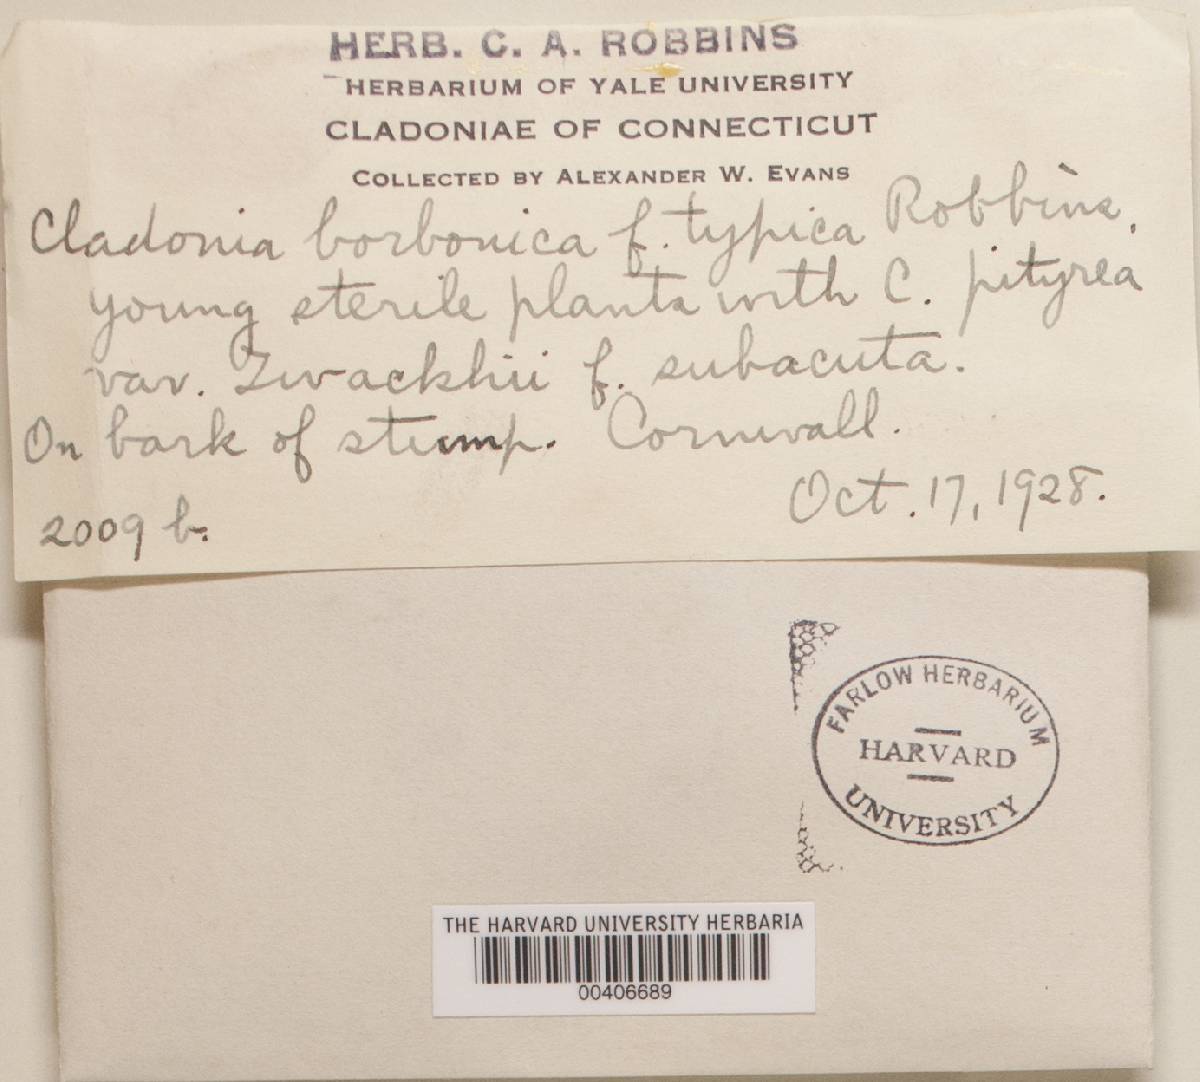 HERB. C. A. ROBBINS
HERBARIUM OF YALE UNIVERSITY
CLADONIAE OF CONNECTICUT
COLLECTED BY ALEXANDER W. EVANS
Cladonia borbonica f. typica Robbins.
young sterile plants with C. pityrea
var. Zwackhii f. subacuta.
On bark of stump. Cornwall.
Oct. 17, 1928.
2009 b.
FARLOW HERBARIUM
HARVARD
UNIVERSITY
THE HARVARD UNIVERSITY HERBARIA
00406689